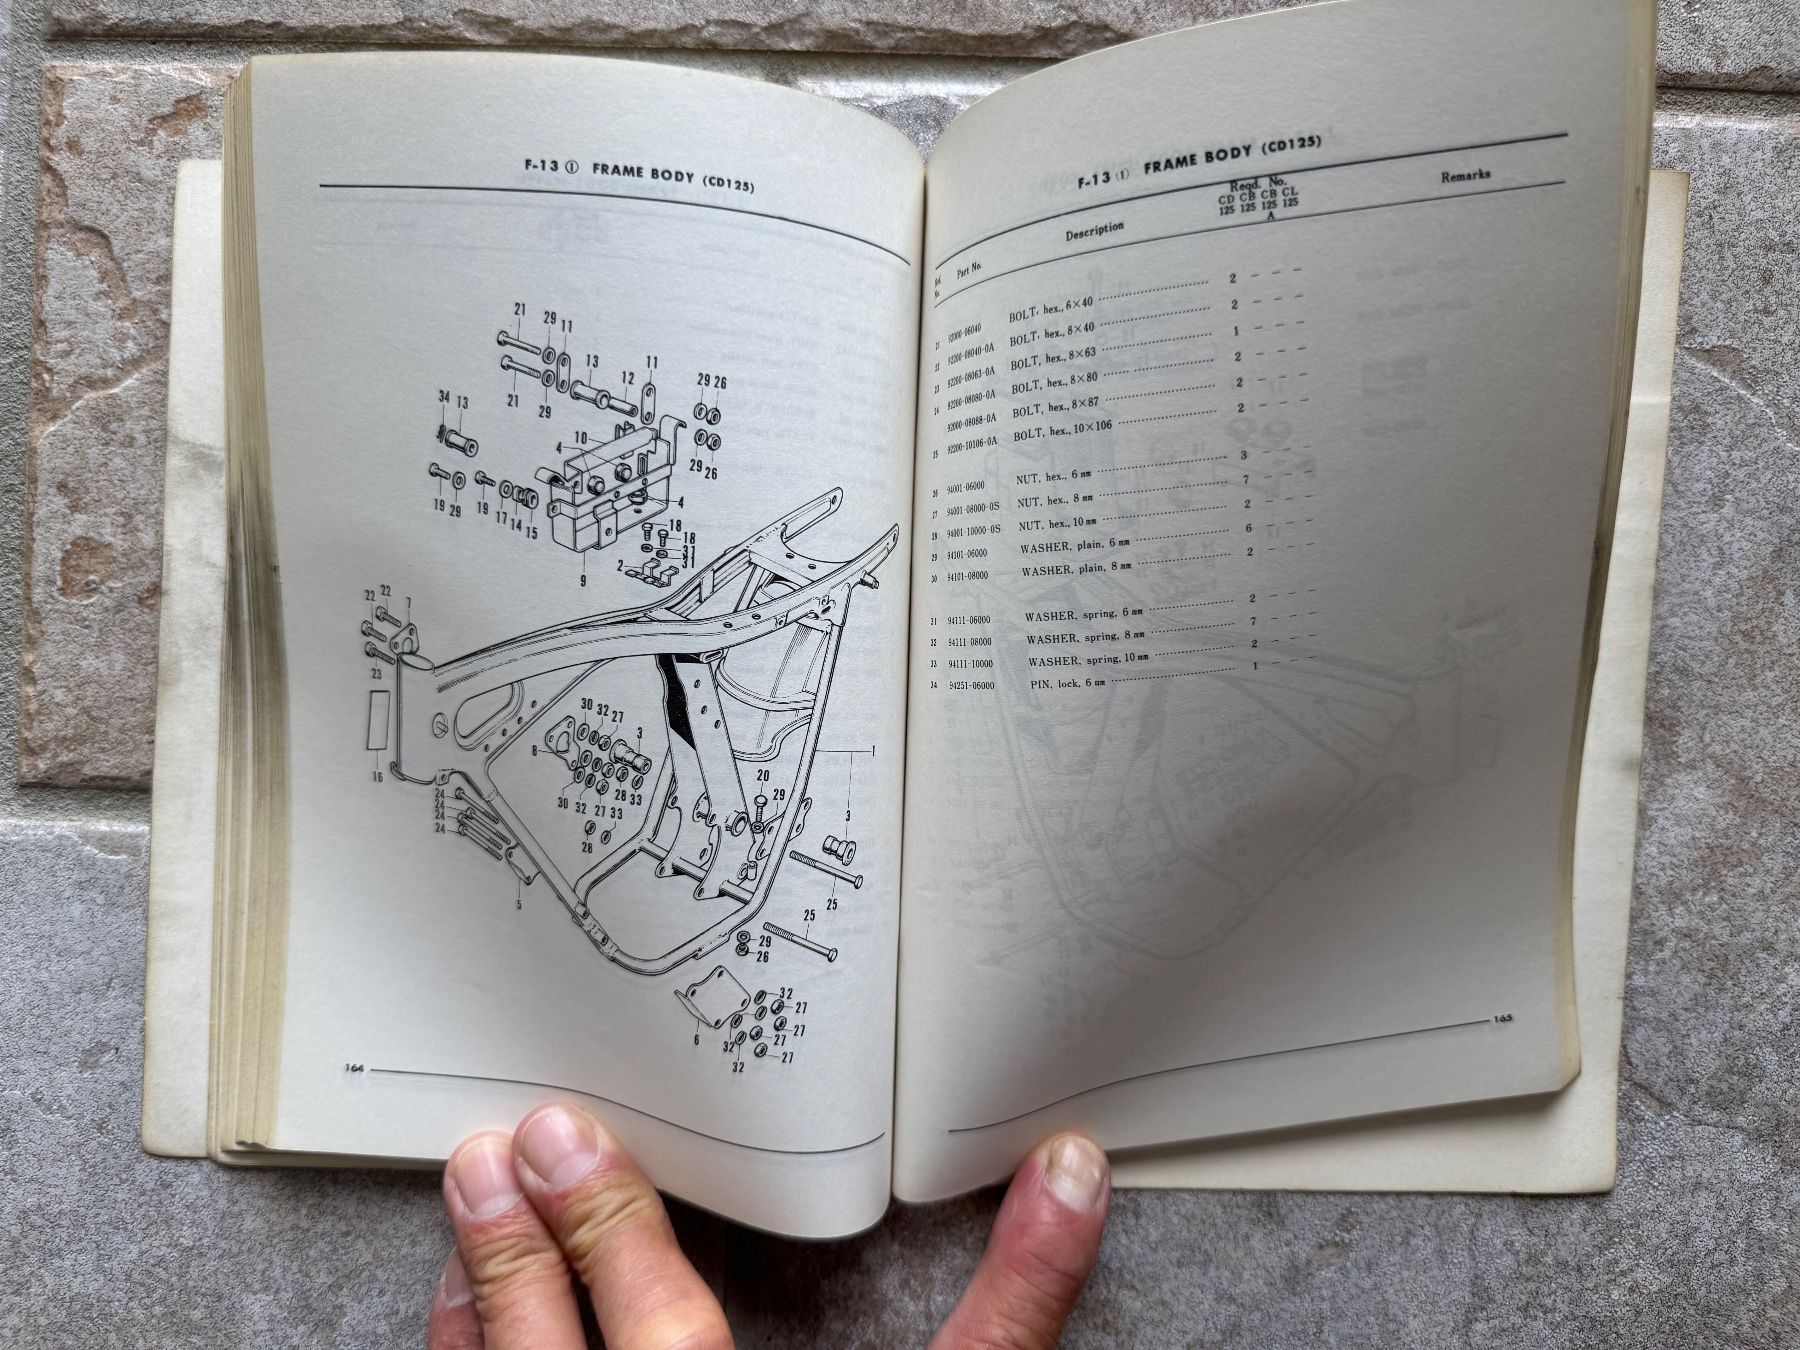 F-13 ① FRAME BODY (CD125)
21
29 11
13
11
12
29 26
34 13
21
29
10
4
29 26
19 29
19 17 14 15
4
18
18
31
2 31
9
22 22 7
23
30 32 27
3
8
1
16
20
29
30 32 27 28 33
33
28
3
24
24
24
24
5
25
25
29
26
32
27
27
6
32
27
32
27
164
F-13 (1) FRAME BODY (CD125)
Ref. No. Part No. Description Reqd. No. Remarks
CD CB CB CL
125 125 125 125
A
21 92000-06040 BOLT, hex., 6×40 2 - - -
22 92200-08040-0A BOLT, hex., 8×40 2 - - -
23 92200-08063-0A BOLT, hex., 8×63 1 - - -
24 92200-08080-0A BOLT, hex., 8×80 2 - - -
92000-08088-0A BOLT, hex., 8×87 2 - - -
25 92200-10106-0A BOLT, hex., 10×106 2 - - -
26 94001-06000 NUT, hex., 6 mm 3 - - -
27 94001-08000-0S NUT, hex., 8 mm 7 - - -
28 94001-10000-0S NUT, hex., 10 mm 2 - - -
29 94101-06000 WASHER, plain, 6 mm 6 - - -
30 94101-08000 WASHER, plain, 8 mm 2 - - -
31 94111-06000 WASHER, spring, 6 mm 2 - - -
32 94111-08000 WASHER, spring, 8 mm 7 - - -
33 94111-10000 WASHER, spring, 10 mm 2 - - -
34 94251-06000 PIN, lock, 6 mm 1 - - -
165